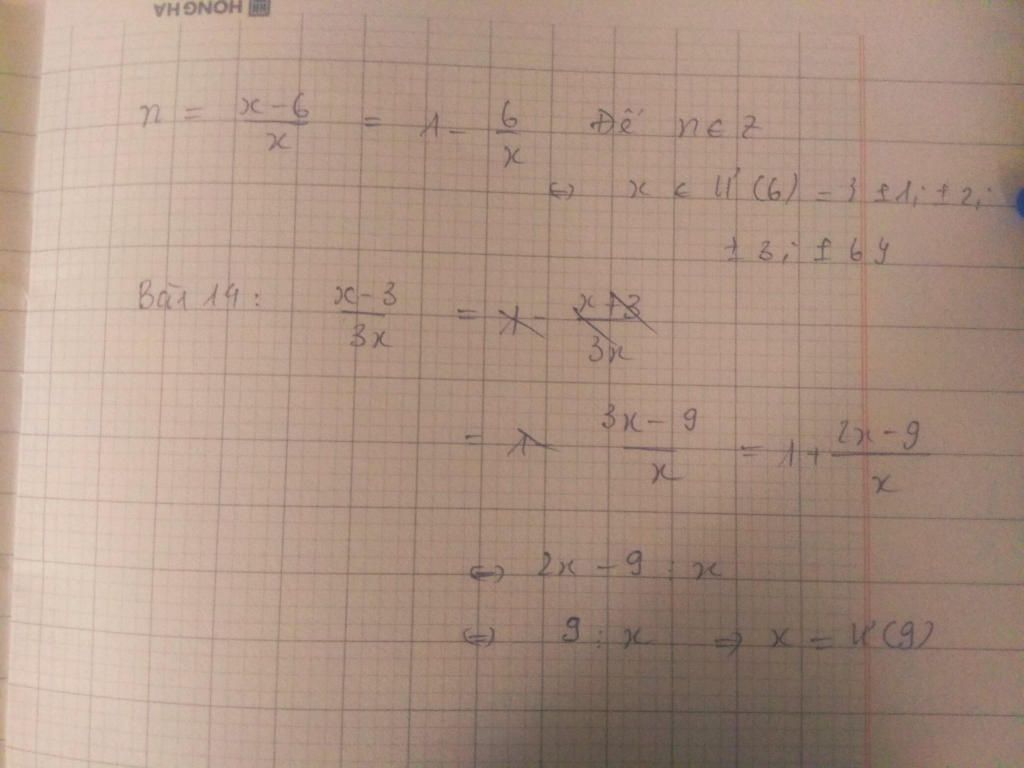 HONG HA
n = \frac{x-6}{x} = 1 - \frac{6}{x} Để n ∈ Z
<=> x ∈ Ư(6) = {±1; ±2;
±3; ±6}
Bài 14: \frac{x-3}{3x} = 1 - \frac{x+3}{3x}
= 1 \frac{3x-9}{x} = 1 + \frac{2x-9}{x}
<=> 2x - 9 ⋮ x
<=> 9 ⋮ x => x = Ư(9)